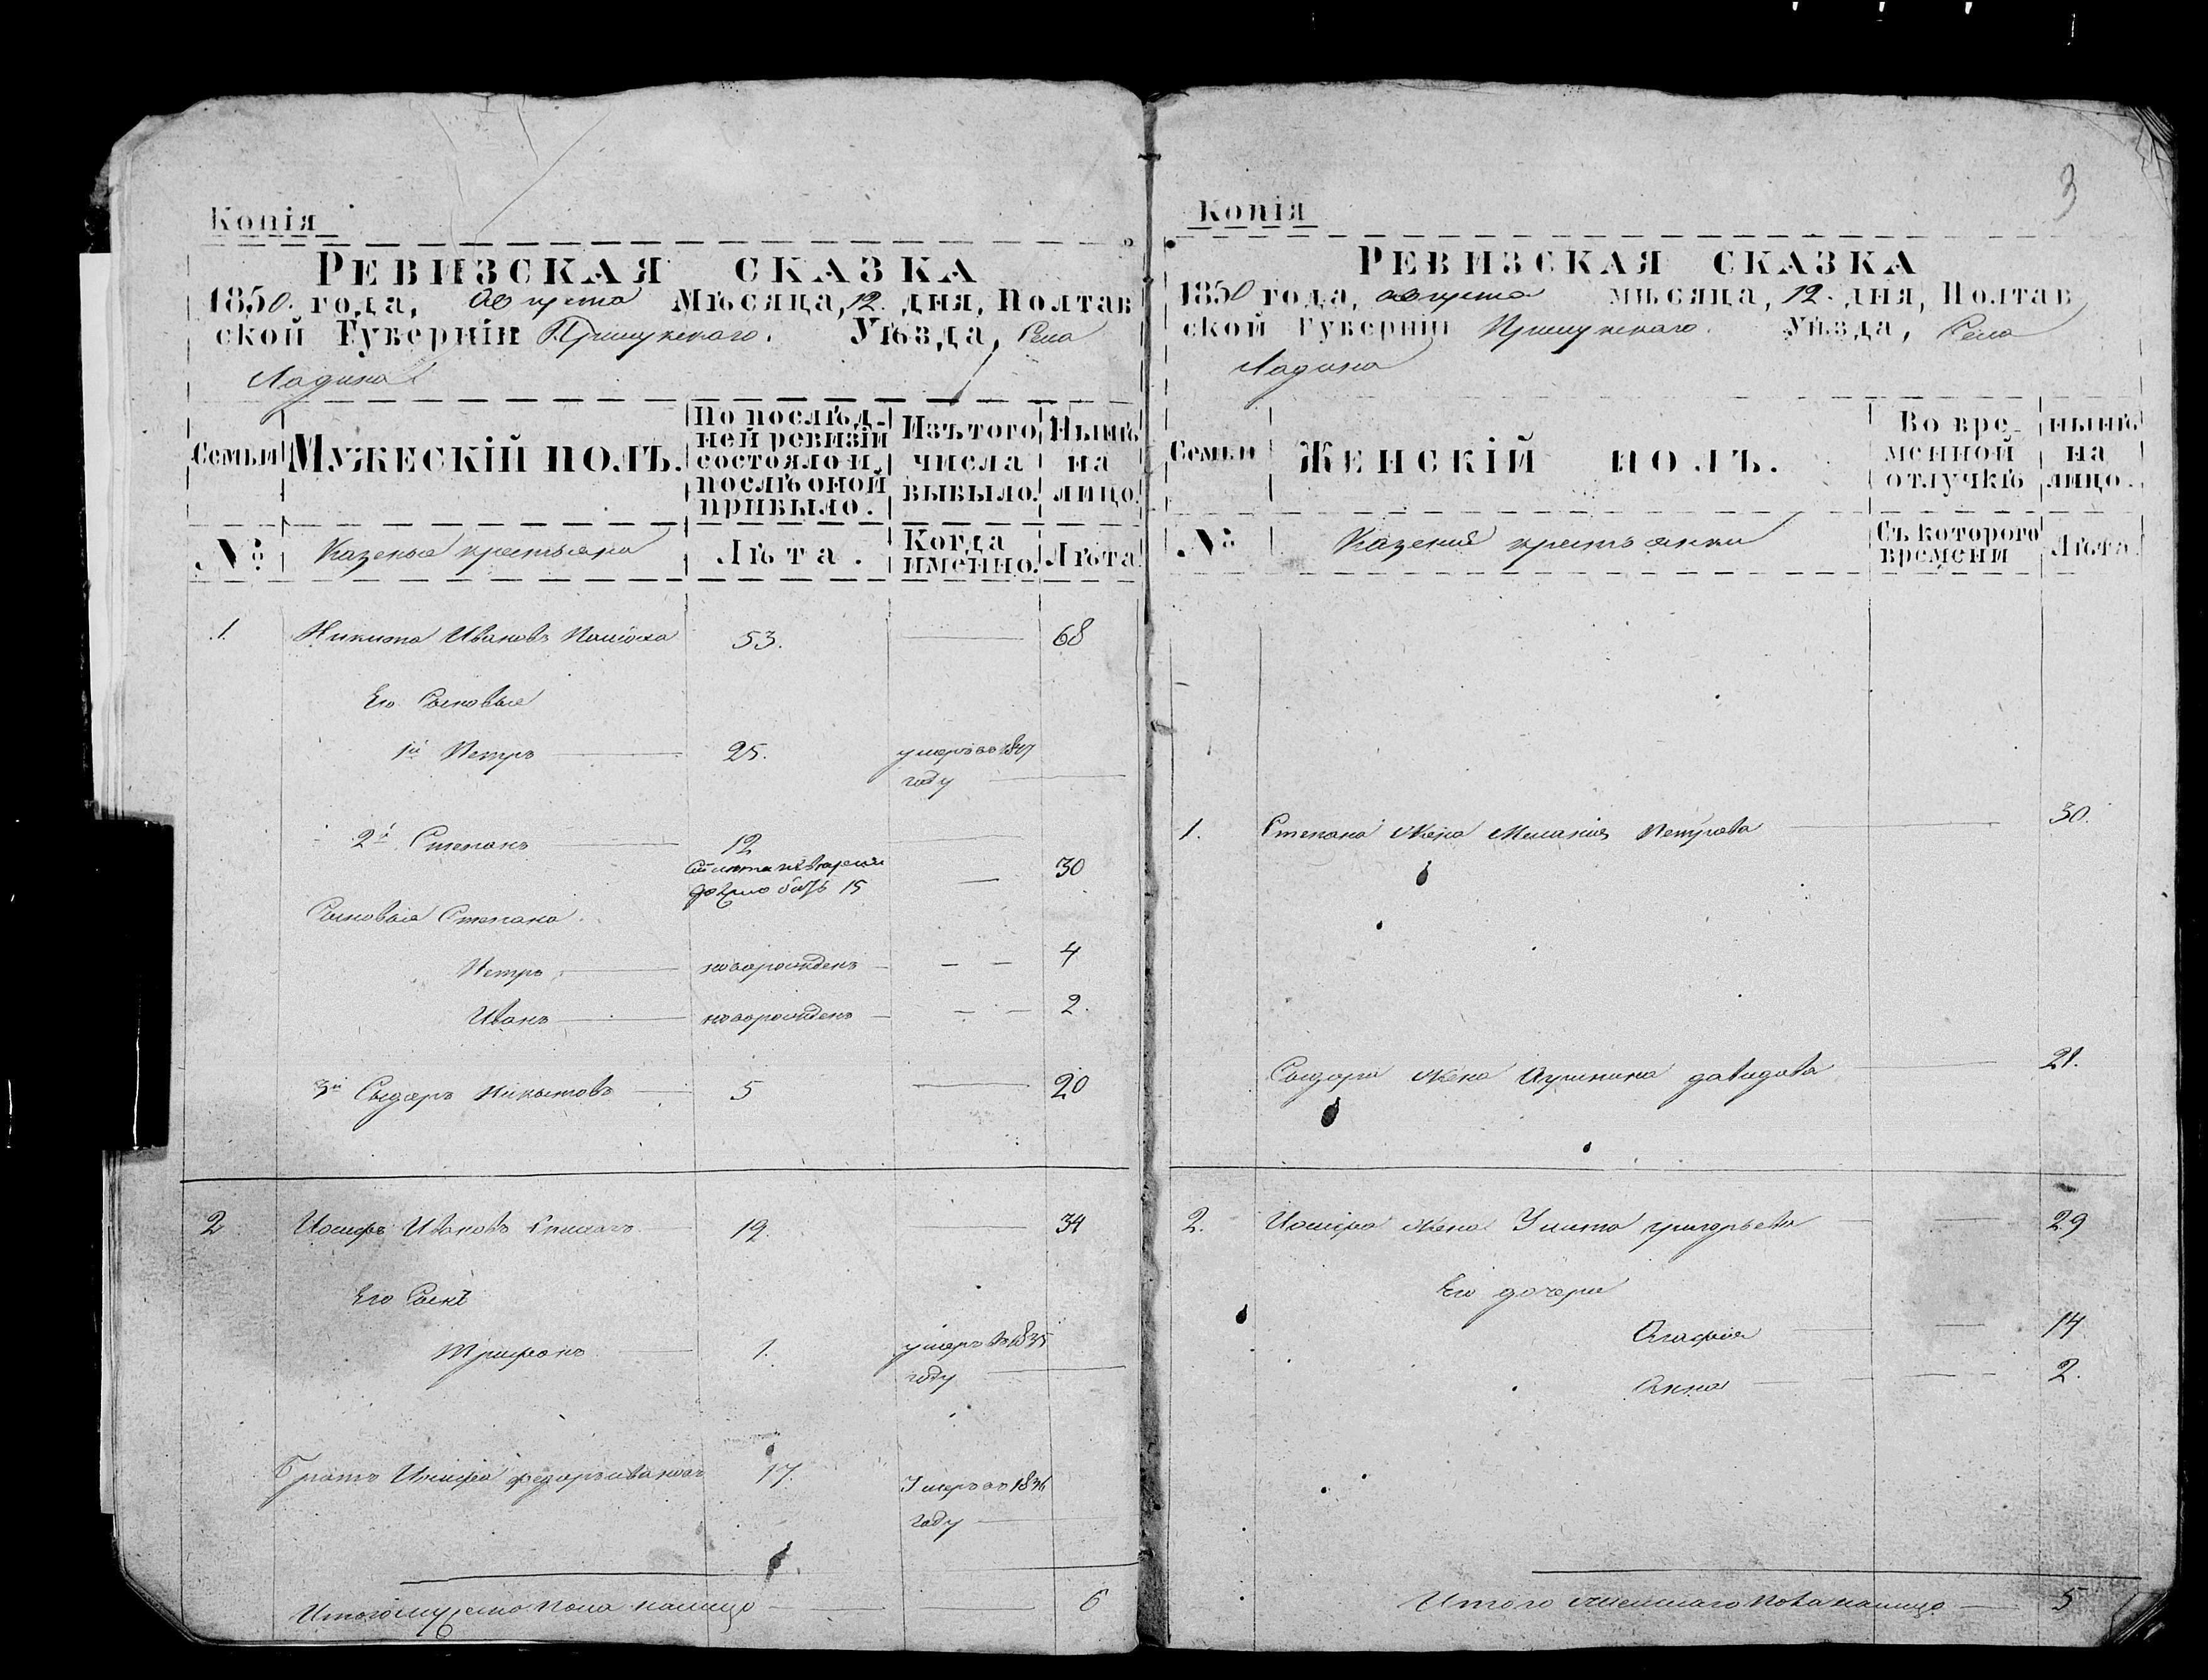 Копія
РЕВИЗСКАЯ СКАЗКА
1850 года, августа Мѣсяца, 12 дня, Полтав
ской Губерніи Прилукского. Уѣзда, Села
Ладина
Семьи
МУЖЕСКІЙ ПОЛЪ.
По послѣд-
ней ревизіи
состояло и
послѣ оной
прибыло.
Изъ того
числа
выбыло.
Нынѣ
на
лицо.
№
Казеные крестьяне
Лѣта.
Когда
именно.
Лѣта
1. Никита Ивановъ 53. 68
Его Сыновья
1й Петръ 25. умеръ въ 1847
году
2й Степанъ 12
должно быть 15 30
Сыновья Степана
Петръ новорожденъ 4
Иванъ новорожденъ 2.
3й Сыдоръ Никытовъ 5 20
2. Иосифъ Ивановъ 19. 34
Его Сынъ
Трифонъ 1. умеръ въ 1835
году
Братъ Иосифа Федоръ Ивановъ 17. Умеръ въ 1836
году
Итого мужеска пола налицо 6
3
Копія
РЕВИЗСКАЯ СКАЗКА
1850 года, августа мѣсяца, 12 дня, Полтав
ской Губерніи Прилукского. Уѣзда, Села
Ладина
Семьи
ЖЕНСКІЙ ПОЛЪ.
Во вре-
менной
отлучкѣ
нынѣ
на
лицо.
№
Казеные крестьянки
Съ которого
времени
Лѣта
1. Степана жена Меланія Петрова 30.
Сыдора жена давидова 21.
2. Иосифа жена Улита григорьева 29
Его дочери
Агафія 14
Анна 2.
Итого женскаго пола налицо 5